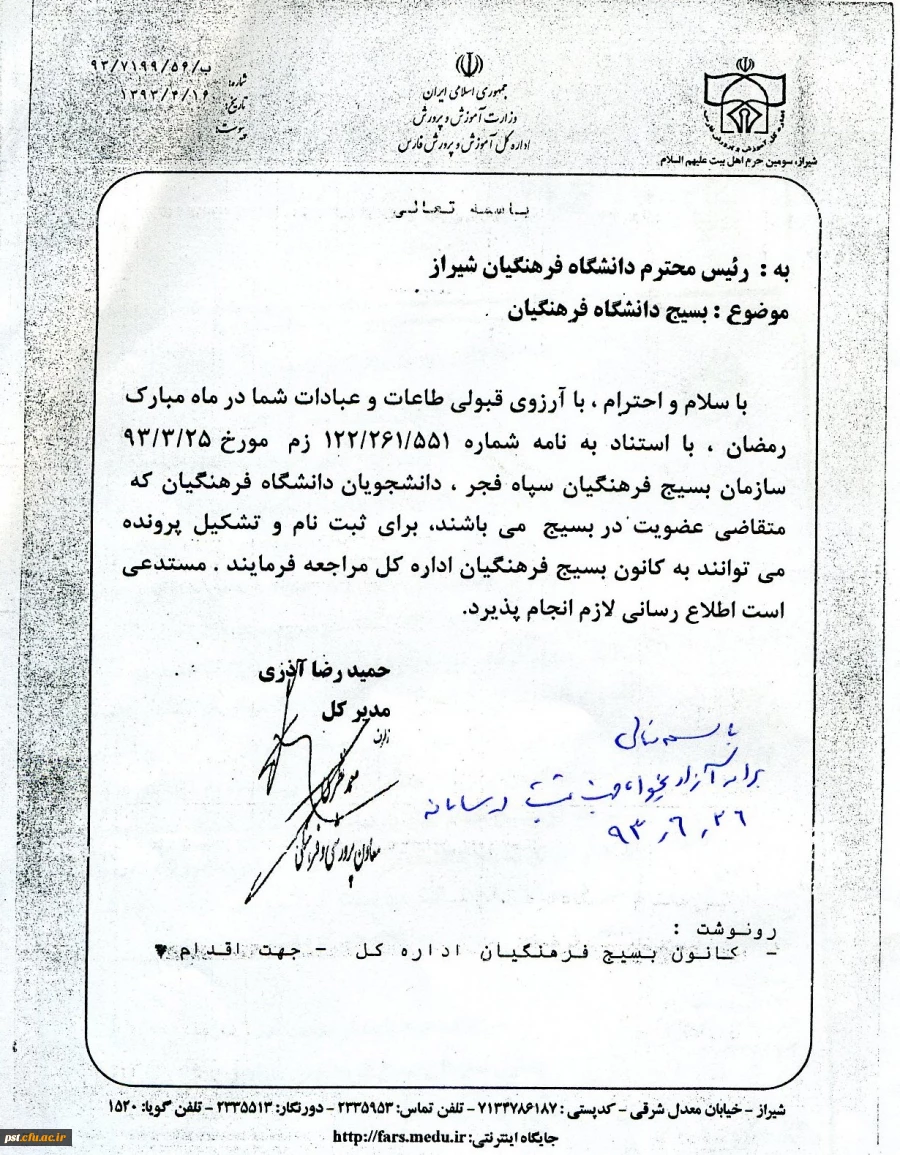 شماره: ب/۹۳/۷۱۹۹/۵۶
تاریخ: ۱۳۹۳/۴/۱۶
پیوست:
جمهوری اسلامی ایران
وزارت آموزش و پرورش
اداره کل آموزش و پرورش فارس
اداره کل آموزش و پرورش فارس
شیراز، سومین حرم اهل بیت علیهم السلام
باسمه تعالی
به : رئیس محترم دانشگاه فرهنگیان شیراز
موضوع : بسیج دانشگاه فرهنگیان .
با سلام و احترام ، با آرزوی قبولی طاعات و عبادات شما در ماه مبارک
رمضان ، با استناد به نامه شماره ۱۲۲/۲۶۱/۵۵۱ زم مورخ ۹۳/۳/۲۵
سازمان بسیج فرهنگیان سپاه فجر ، دانشجویان دانشگاه فرهنگیان که
متقاضی عضویت در بسیج می باشند، برای ثبت نام و تشکیل پرونده
می توانند به کانون بسیج فرهنگیان اداره کل مراجعه فرمایند . مستدعی
است اطلاع رسانی لازم انجام پذیرد.
حمید رضا آذری
مدیر کل
از طرف
معاون پرورشی و فرهنگی
باسمه تعالی
برادر آزاد جهت در سامانه
۹۳/۶/۲۶
رونوشت :
- کانون بسیج فرهنگیان اداره کل - جهت اقدام
شیراز - خیابان معدل شرقی - کدپستی : ۷۱۳۴۷۸۶۱۸۷ - تلفن تماس: ۲۳۳۵۹۵۳ - دورنگار: ۲۳۳۵۵۱۳ - تلفن گویا: ۱۵۲۰
جایگاه اینترنتی: http://fars.medu.ir
pst.cfu.ac.ir